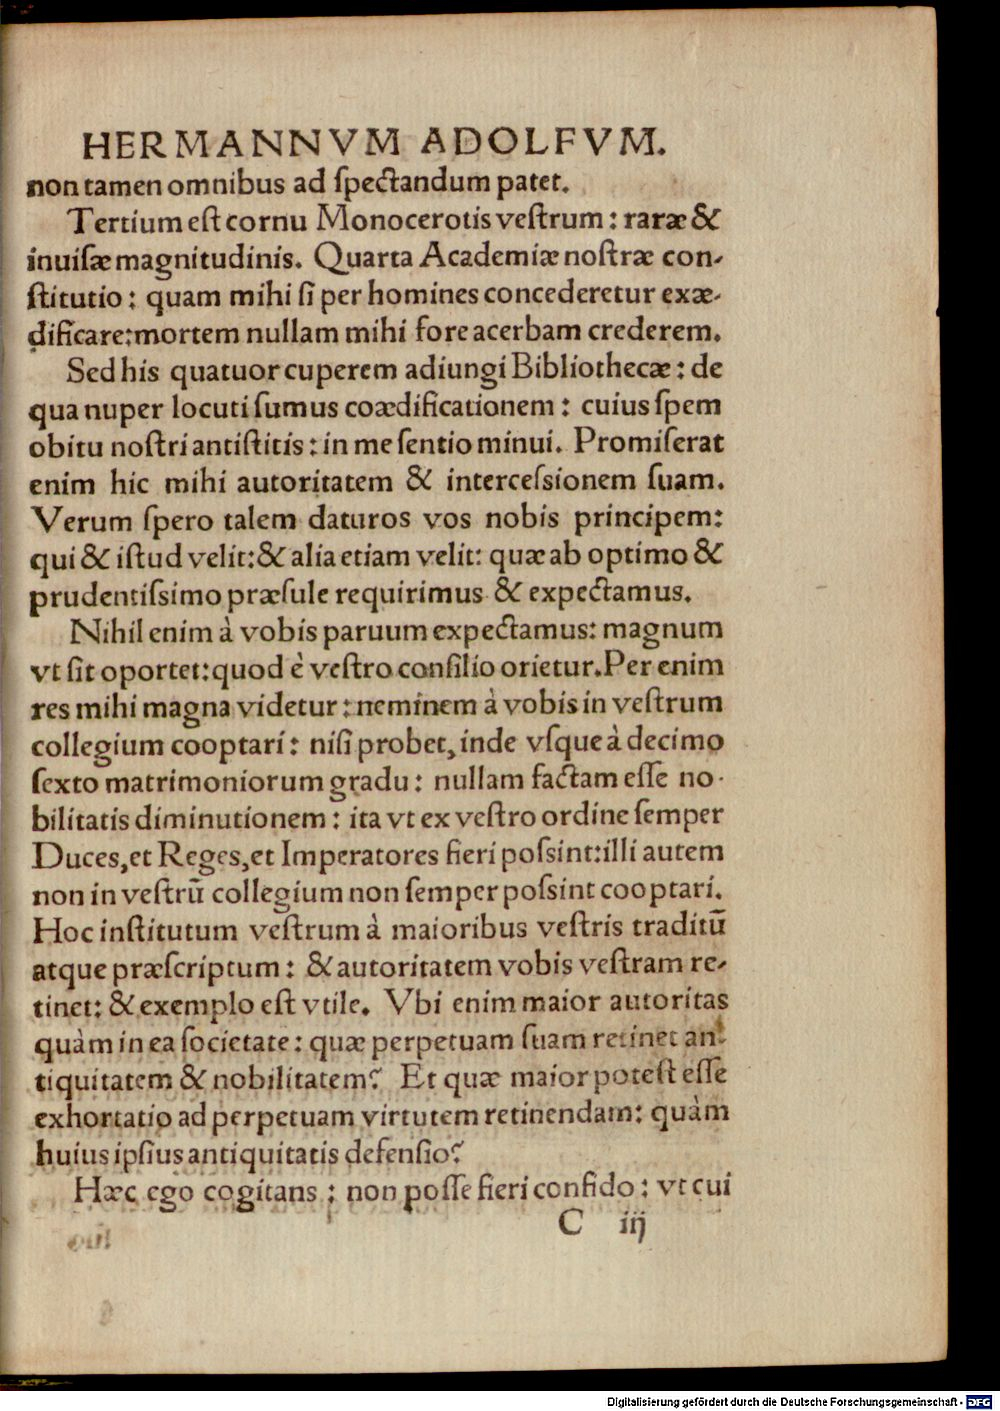 HERMANNVM ADOLFVM.
non tamen omnibus ad ſpectandum patet.
Tertium eſt cornu Monocerotis veſtrum: raræ &
inuiſæ magnitudinis. Quarta Academiæ noſtræ con-
ſtitutio: quam mihi ſi per homines concederetur exæ-
dificare: mortem nullam mihi fore acerbam crederem.
Sed his quatuor cuperem adiungi Bibliothecæ: de
qua nuper locuti ſumus coædificationem: cuius ſpem
obitu noſtri antiſtitis: in me ſentio minui. Promiſerat
enim hic mihi autoritatem & interceſsionem ſuam.
Verum ſpero talem daturos vos nobis principem:
qui & iſtud velit: & alia etiam velit: quæ ab optimo &
prudentiſsimo præſule requirimus & expectamus.
Nihil enim à vobis paruum expectamus: magnum
vt ſit oportet: quod è veſtro conſilio orietur. Per enim
res mihi magna videtur: neminem à vobis in veſtrum
collegium cooptari: niſi probet, inde vſque à decimo
ſexto matrimoniorum gradu: nullam factam eſſe no-
bilitatis diminutionem: ita vt ex veſtro ordine ſemper
Duces, et Reges, et Imperatores fieri poſsint: illi autem
non in veſtrũ collegium non ſemper poſsint cooptari.
Hoc inſtitutum veſtrum à maioribus veſtris traditũ
atque præſcriptum: & autoritatem vobis veſtram re-
tinet: & exemplo eſt vtile. Vbi enim maior autoritas
quàm in ea ſocietate: quæ perpetuam ſuam retinet an-
tiquitatem & nobilitatem? Et quæ maior poteſt eſſe
exhortatio ad perpetuam virtutem retinendam: quàm
huius ipſius antiquitatis defenſio?
Hæc ego cogitans: non poſſe fieri confido: vt cui
C iij
Digitalisierung gefördert durch die Deutsche Forschungsgemeinschaft - DFG